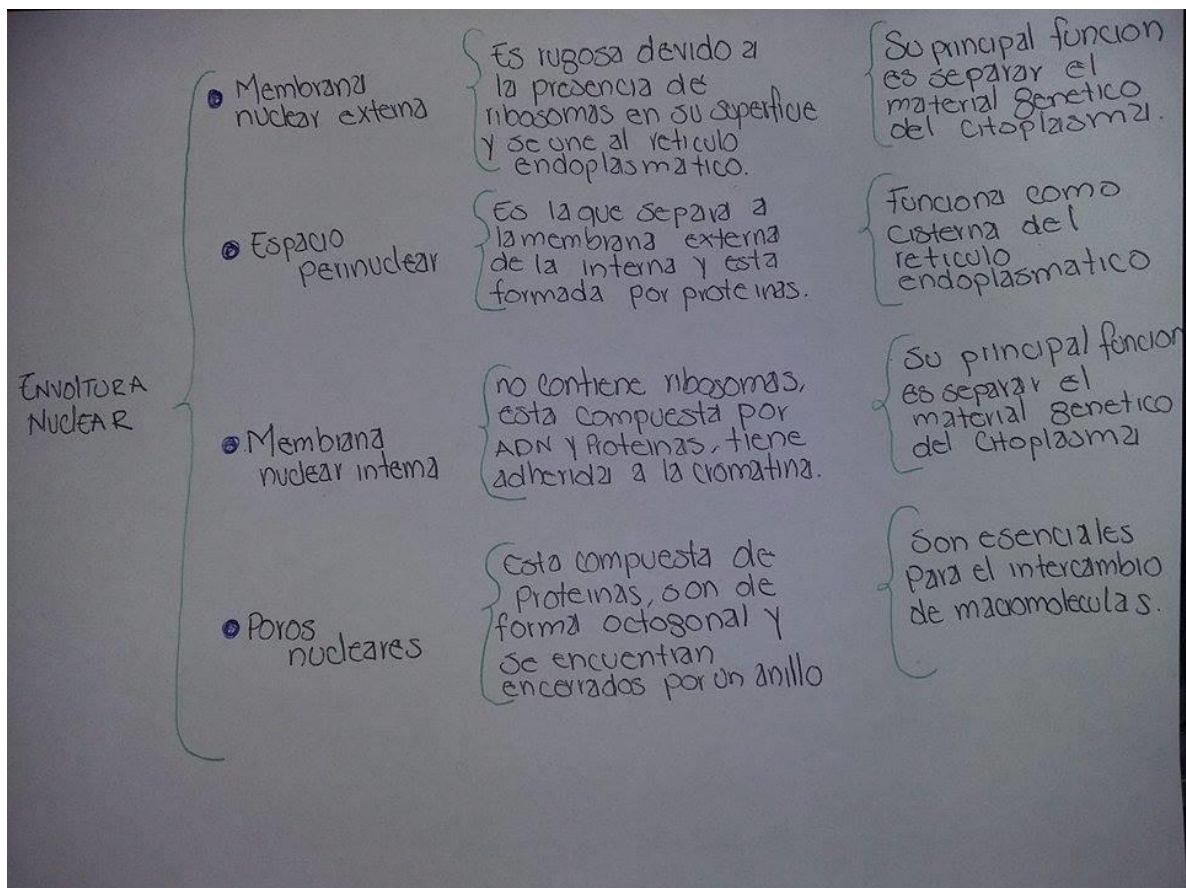 ENVOLTURA
NUCLEAR
Membrana
nuclear externa
Es rugosa devido a
la presencia de
ribosomas en su superficie
y se une al reticulo
endoplasmatico.
Su principal funcion
es separar el
material genetico
del citoplasma.
Espacio
perinuclear
Es la que separa a
la membrana externa
de la interna y esta
formada por proteinas.
Funciona como
cisterna del
reticulo
endoplasmatico
Membrana
nuclear interna
no contiene ribosomas,
esta compuesta por
ADN y Proteinas, tiene
adherida a la cromatina.
Su principal funcion
es separar el
material genetico
del Citoplasma
Poros
nucleares
Esta compuesta de
Proteinas, son de
forma octogonal y
se encuentran
encerrados por un anillo
Son esenciales
para el intercambio
de macromoleculas.